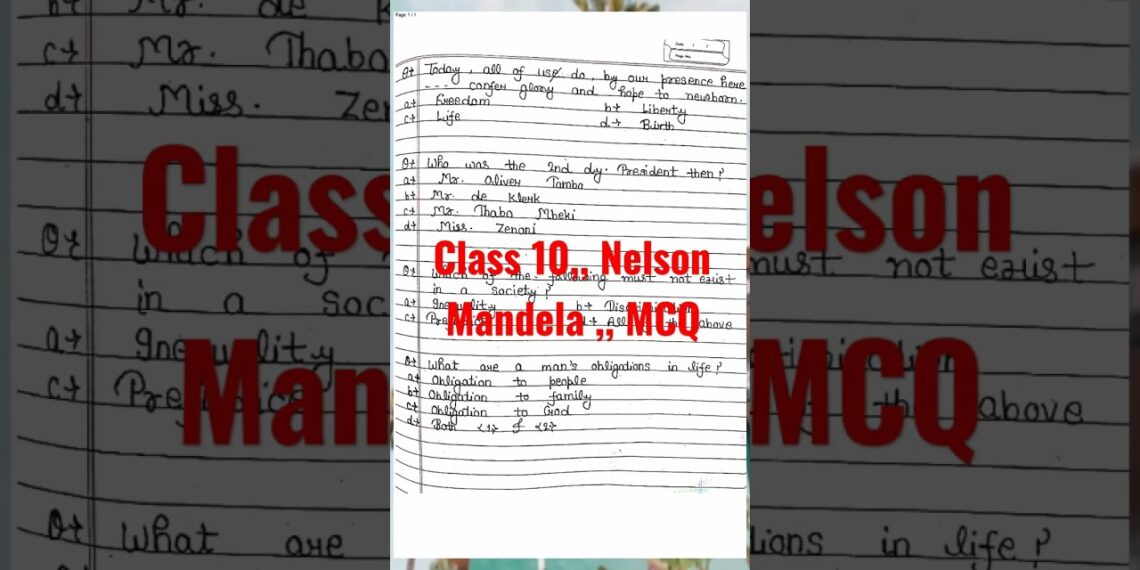 Page 1 / 1
Date / /
Page No.
Q→ Today, all of use do, by our presence here
--- confer glory and hope to newborn.
a→ Freedom b→ Liberty
c→ Life d→ Birth
Q→ Who was the 2nd dy. President then?
a→ Mr. Oliver Tambo
b→ Mr. de Klerk
c→ Mr. Thaba Mbeki
d→ Miss. Zenani
Class 10,, Nelson
Mandela ,, MCQ
Q→ Which of the following must not exist
in a society?
a→ Inequality b→ Discrimination
c→ d→ All the above
Q→ What are a man's obligations in life?
a→ Obligation to people
b→ Obligation to family
c→ Obligation to God
d→ Both <1> & <2>